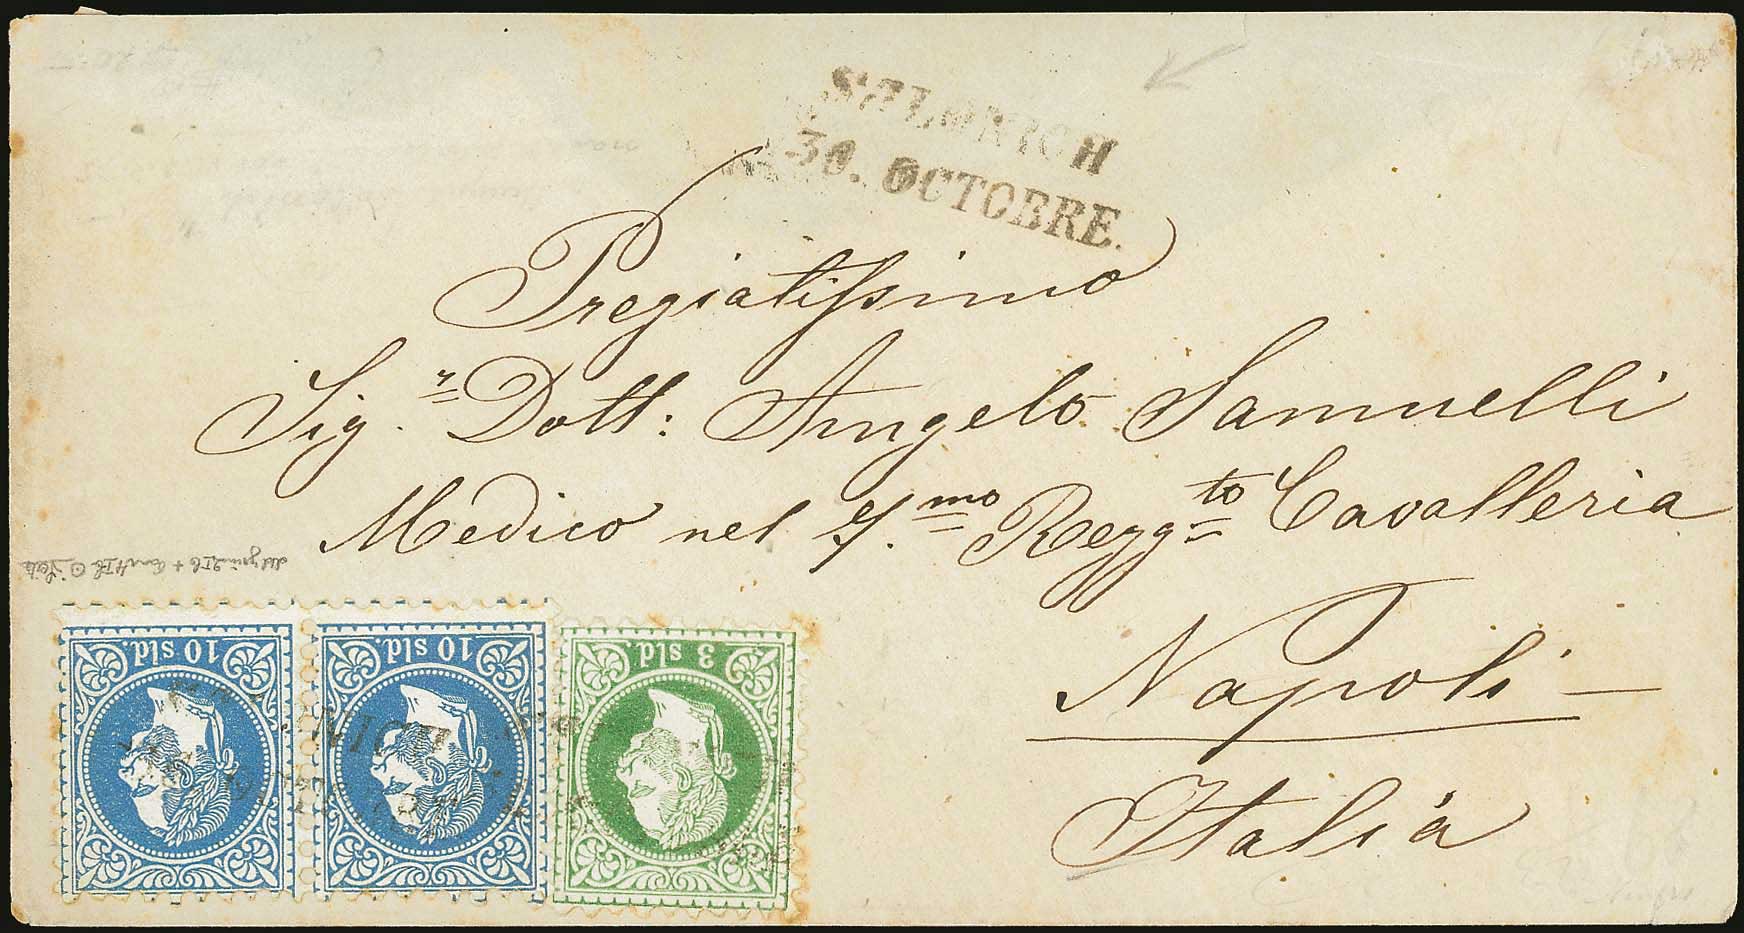 SALONICH
30. OCTOBRE.
Pregiatissimo
Sig.r Dott: Angelo Samuelli
Medico nel 7.mo Regg.to Cavalleria
Napoli —
Italia
10 sld. 10 sld. 3 sld.